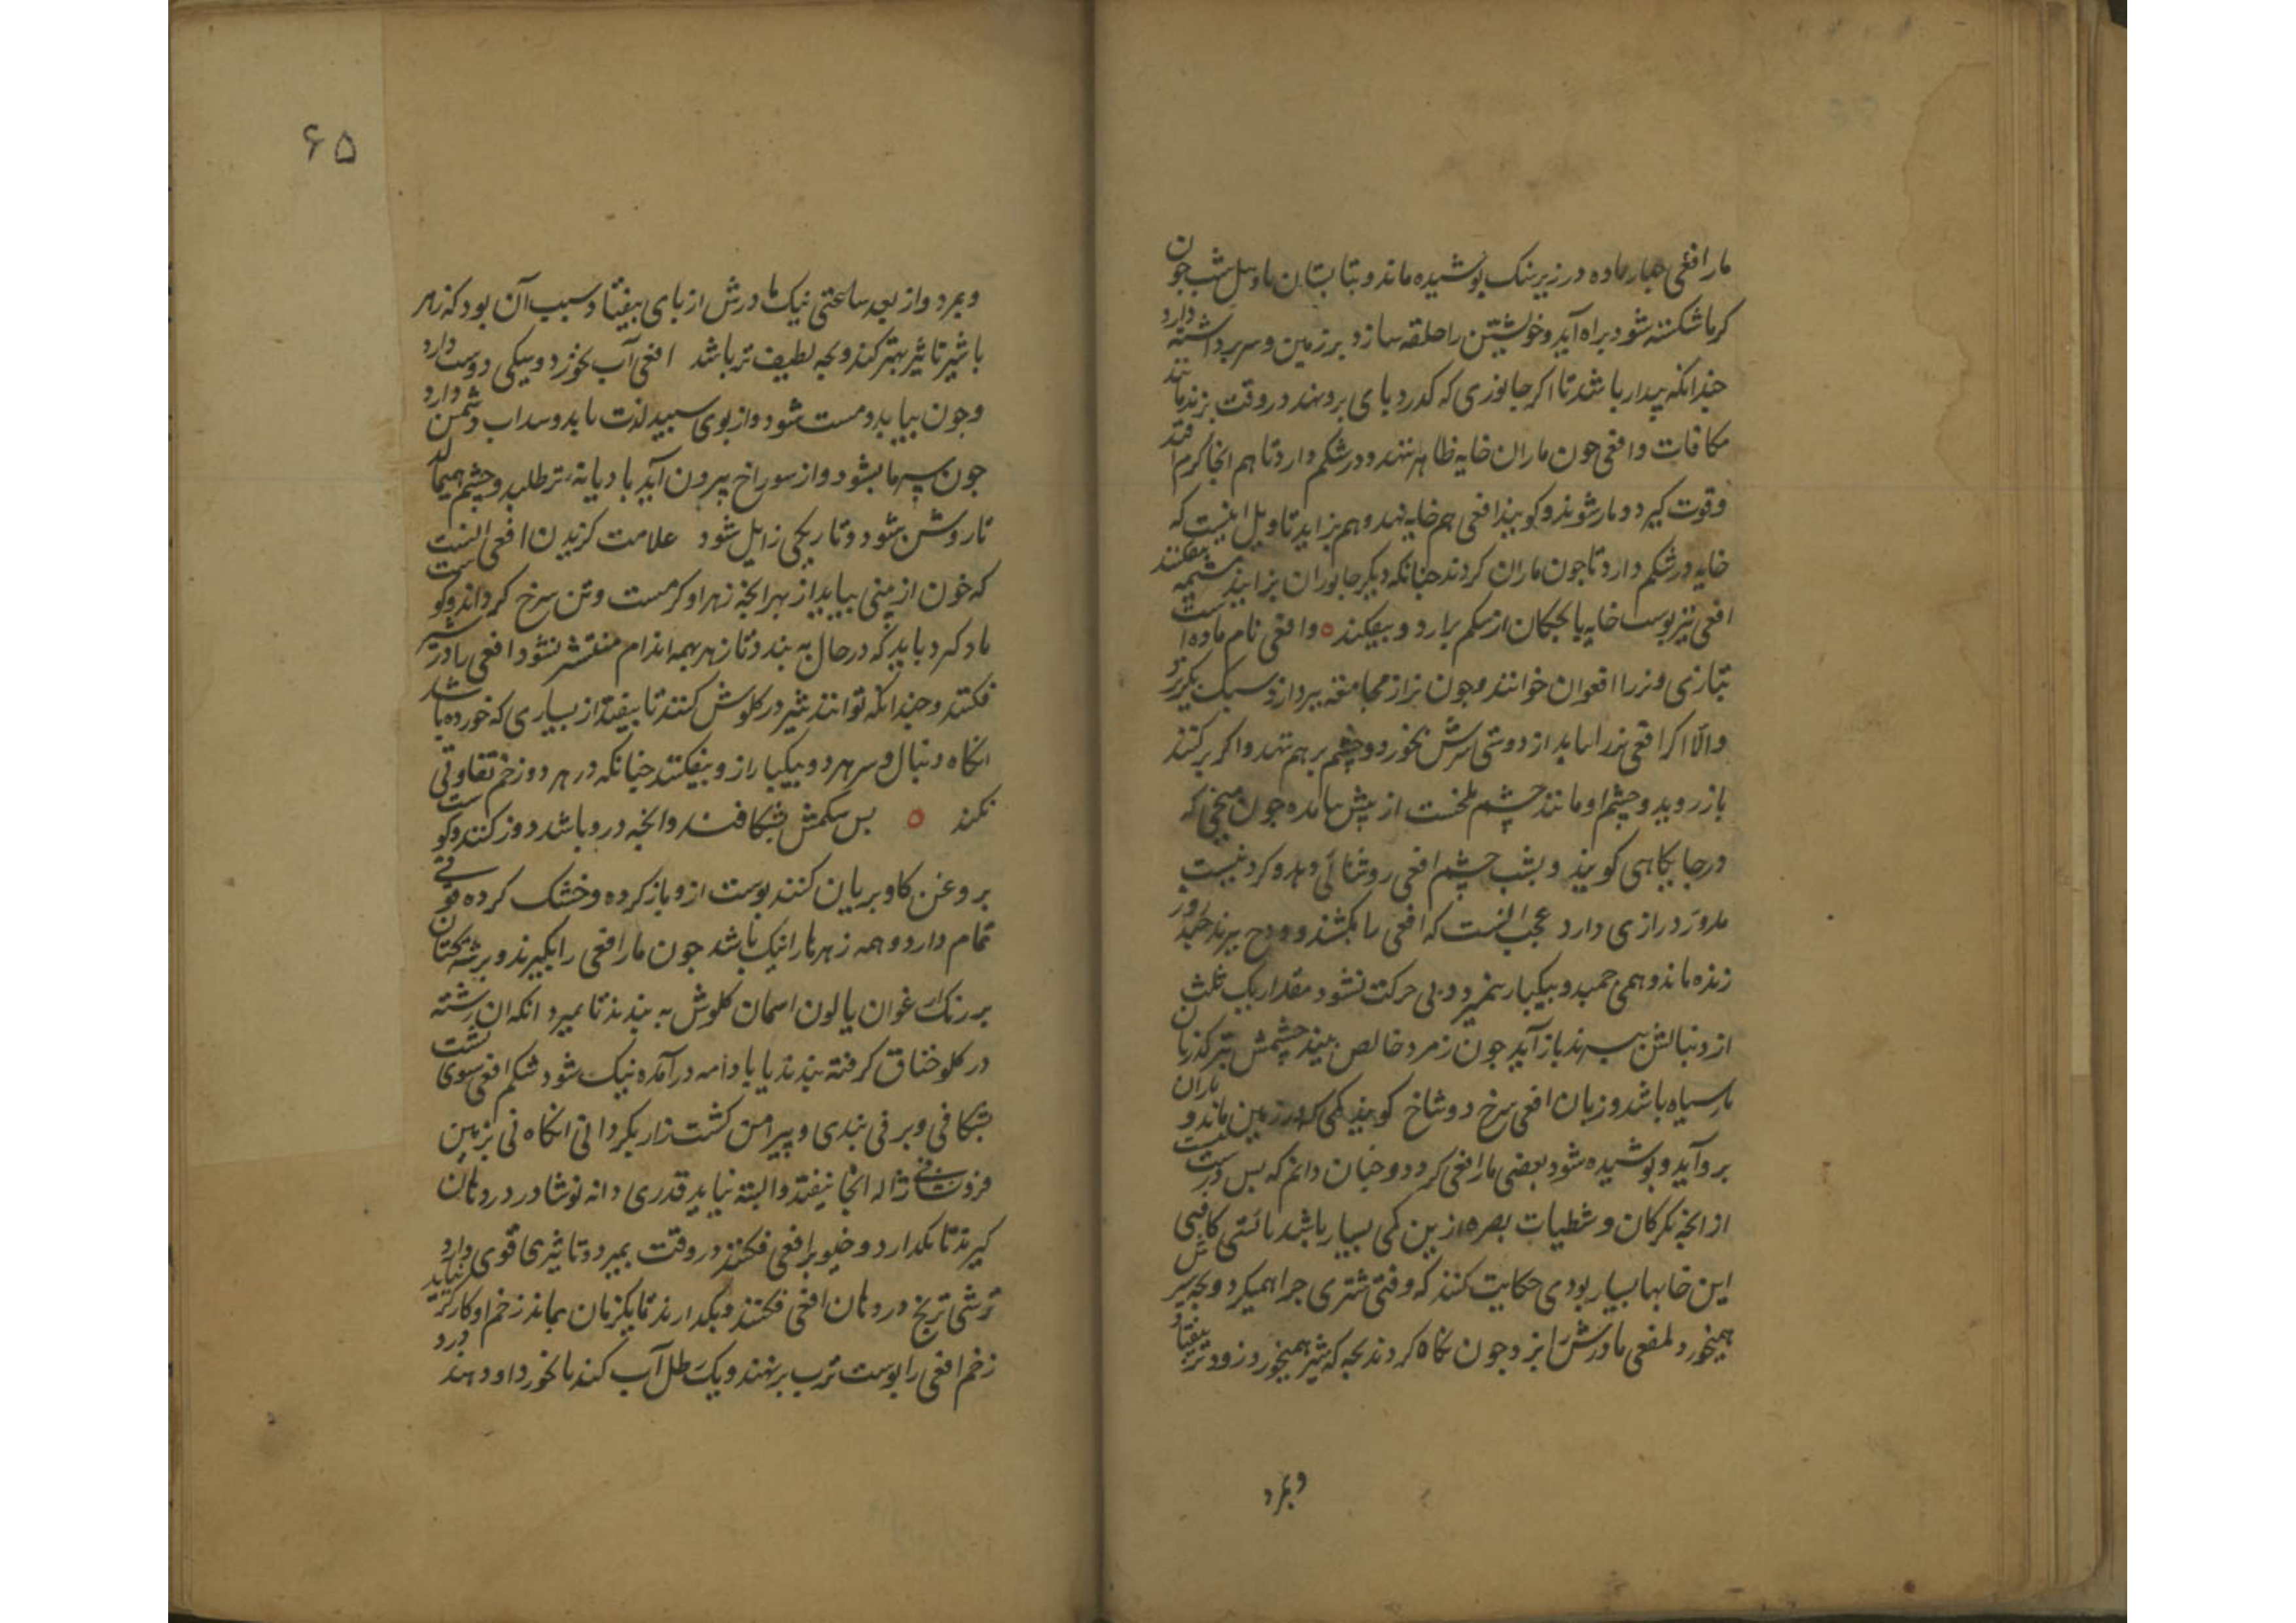 مار افعی چهار ماده در زیر سنک پوشیده ماند و بتابستان باول شب چون
کرما شکسته شود براه آید و خویشتن را حلقه سازد بر زمین و سر برداشته دارد
چندانکه بیدار باشد تا اکر جانوری که کذرد پای برو نهد در وقت بزند مانند
مکافات و افعی چون ماران خایه ظاهر ننهد و در شکم دارد تا هم انجا کرم افتد
وقوت کیرد و مار شوند و کویند افعی هم خایه نهد و هم بزاید تاویل اینست که
خایه در شکم دارد تا چون ماران کردند چنانکه دیکر جانوران بزایند مشیمه بیفکنند
افعی نیز پوست خایه با بچکان از شکم برارد و بیفکند ه وافعی نام ماده است
بتازی و نر را افعوان خوانند و چون نر از مجامعه بپردازد سبک بکریزد
والا اکر افعی نر را بیابد از دوستی سرش بخورد و چشم بر هم نهد و اکر برکنند
باز روید و چشم او مانند چشم ملخست از پیش بیامده چون میخی که
در جایکاهی کویند و بشب چشم افعی روشنائی دهد و کرد نیست
مدور درازی دارد عجب انست که افعی را بکشند و ودج ببرند چند روز
زنده ماند و همی جمبد و بیکبار نمیرد و بی حرکت نشود مقدار یک ثلث
از دنبالش ببرند باز آید چون زمرد خالص بیند چشمش بترکد زبان
مار سیاه باشد و زبان افعی سرخ دوشاخ کویند کمی که در زمین ماند و باران
برو آید و پوشیده شود بعضی مار افعی کردد و چنان دانم که بس درست نیست
از انچه بکرکان و شطیات بصره ازین کمی بسیار باشد بائستی کافعی
این خابها بسیار بودی حکایت کنند که وقتی شتری چرا همیکرد و بچه شیرش
همیخورد افعی مادرش را بزد چون نکاه کردند بچه که شیر همیخورد زودتر بیفتاد
وبمرد
۶۵
وبمرد و از بعد ساعتی نیک مادرش از پای بیفتاد و سبب آن بود که زهر
با شیر تاثیر بهتر کند و بچه لطیف تر باشد افعی آب نخورد و سیکی دوست دارد
وچون بیابد و مست شود و از بوی سپید لذت یابد و سداب دشمن دارد
چون سرما بشود و از سوراخ بیرون آید بادیانه تر طلبد و چشم همیمالد
تا روشن شود و تاریکی زایل شود علامت کزیدن افعی انست
که خون از بینی بیاید از بهر انچه زهر او کرمست و تن سرخ کرداند و کوست
یاد کرد باید که در حال به بندد تا زهر بهمه اندام منتشر نشود افعی را در شیر
فکنند و چندانکه توانند شیر در کلوش کنند تا بیفتد از بسیاری که خورده باشد
انکاه دنبال و سر هر دو بیکبار ازو بیفکنند چنانکه در هر دو زخم تفاوتی
نکند ه پس شکمش بشکافند و انچه درو باشد دور کنند و کوست
بروغن کاو بریان کنند پوست ازو باز کرده و خشک کرده قوتی
تمام دارد و همه زهرها را نیک باشد چون مار افعی را بکیرند و برشته کتان
بر رنک ارغوان یا لون اسمان کلوش به بندند تا بمیرد انکه ان رشته
در کلو خناق کرفته بندند یا بادامه در آمده نیک شود شکم افعی سوی پشت
بشکافی و بر نی بندی و پیرامن کشت زار بکردانی انکاه نی بزمین
فرو نشانی ژاله انجا نیفتد و البته نیاید قدری دانه نوشادر در دهان
کیرند تا بکدازد و خیو بر افعی فکنند در وقت بمیرد و تاثیری قوی دارد
ترشی ترنج در دهان افعی فکنند و بکدارند تا یکزمان بماند زخم او کارکر نیاید
زخم افعی را پوست ترب بر نهند و یک رطل آب کندنا بخورد او دهند درد